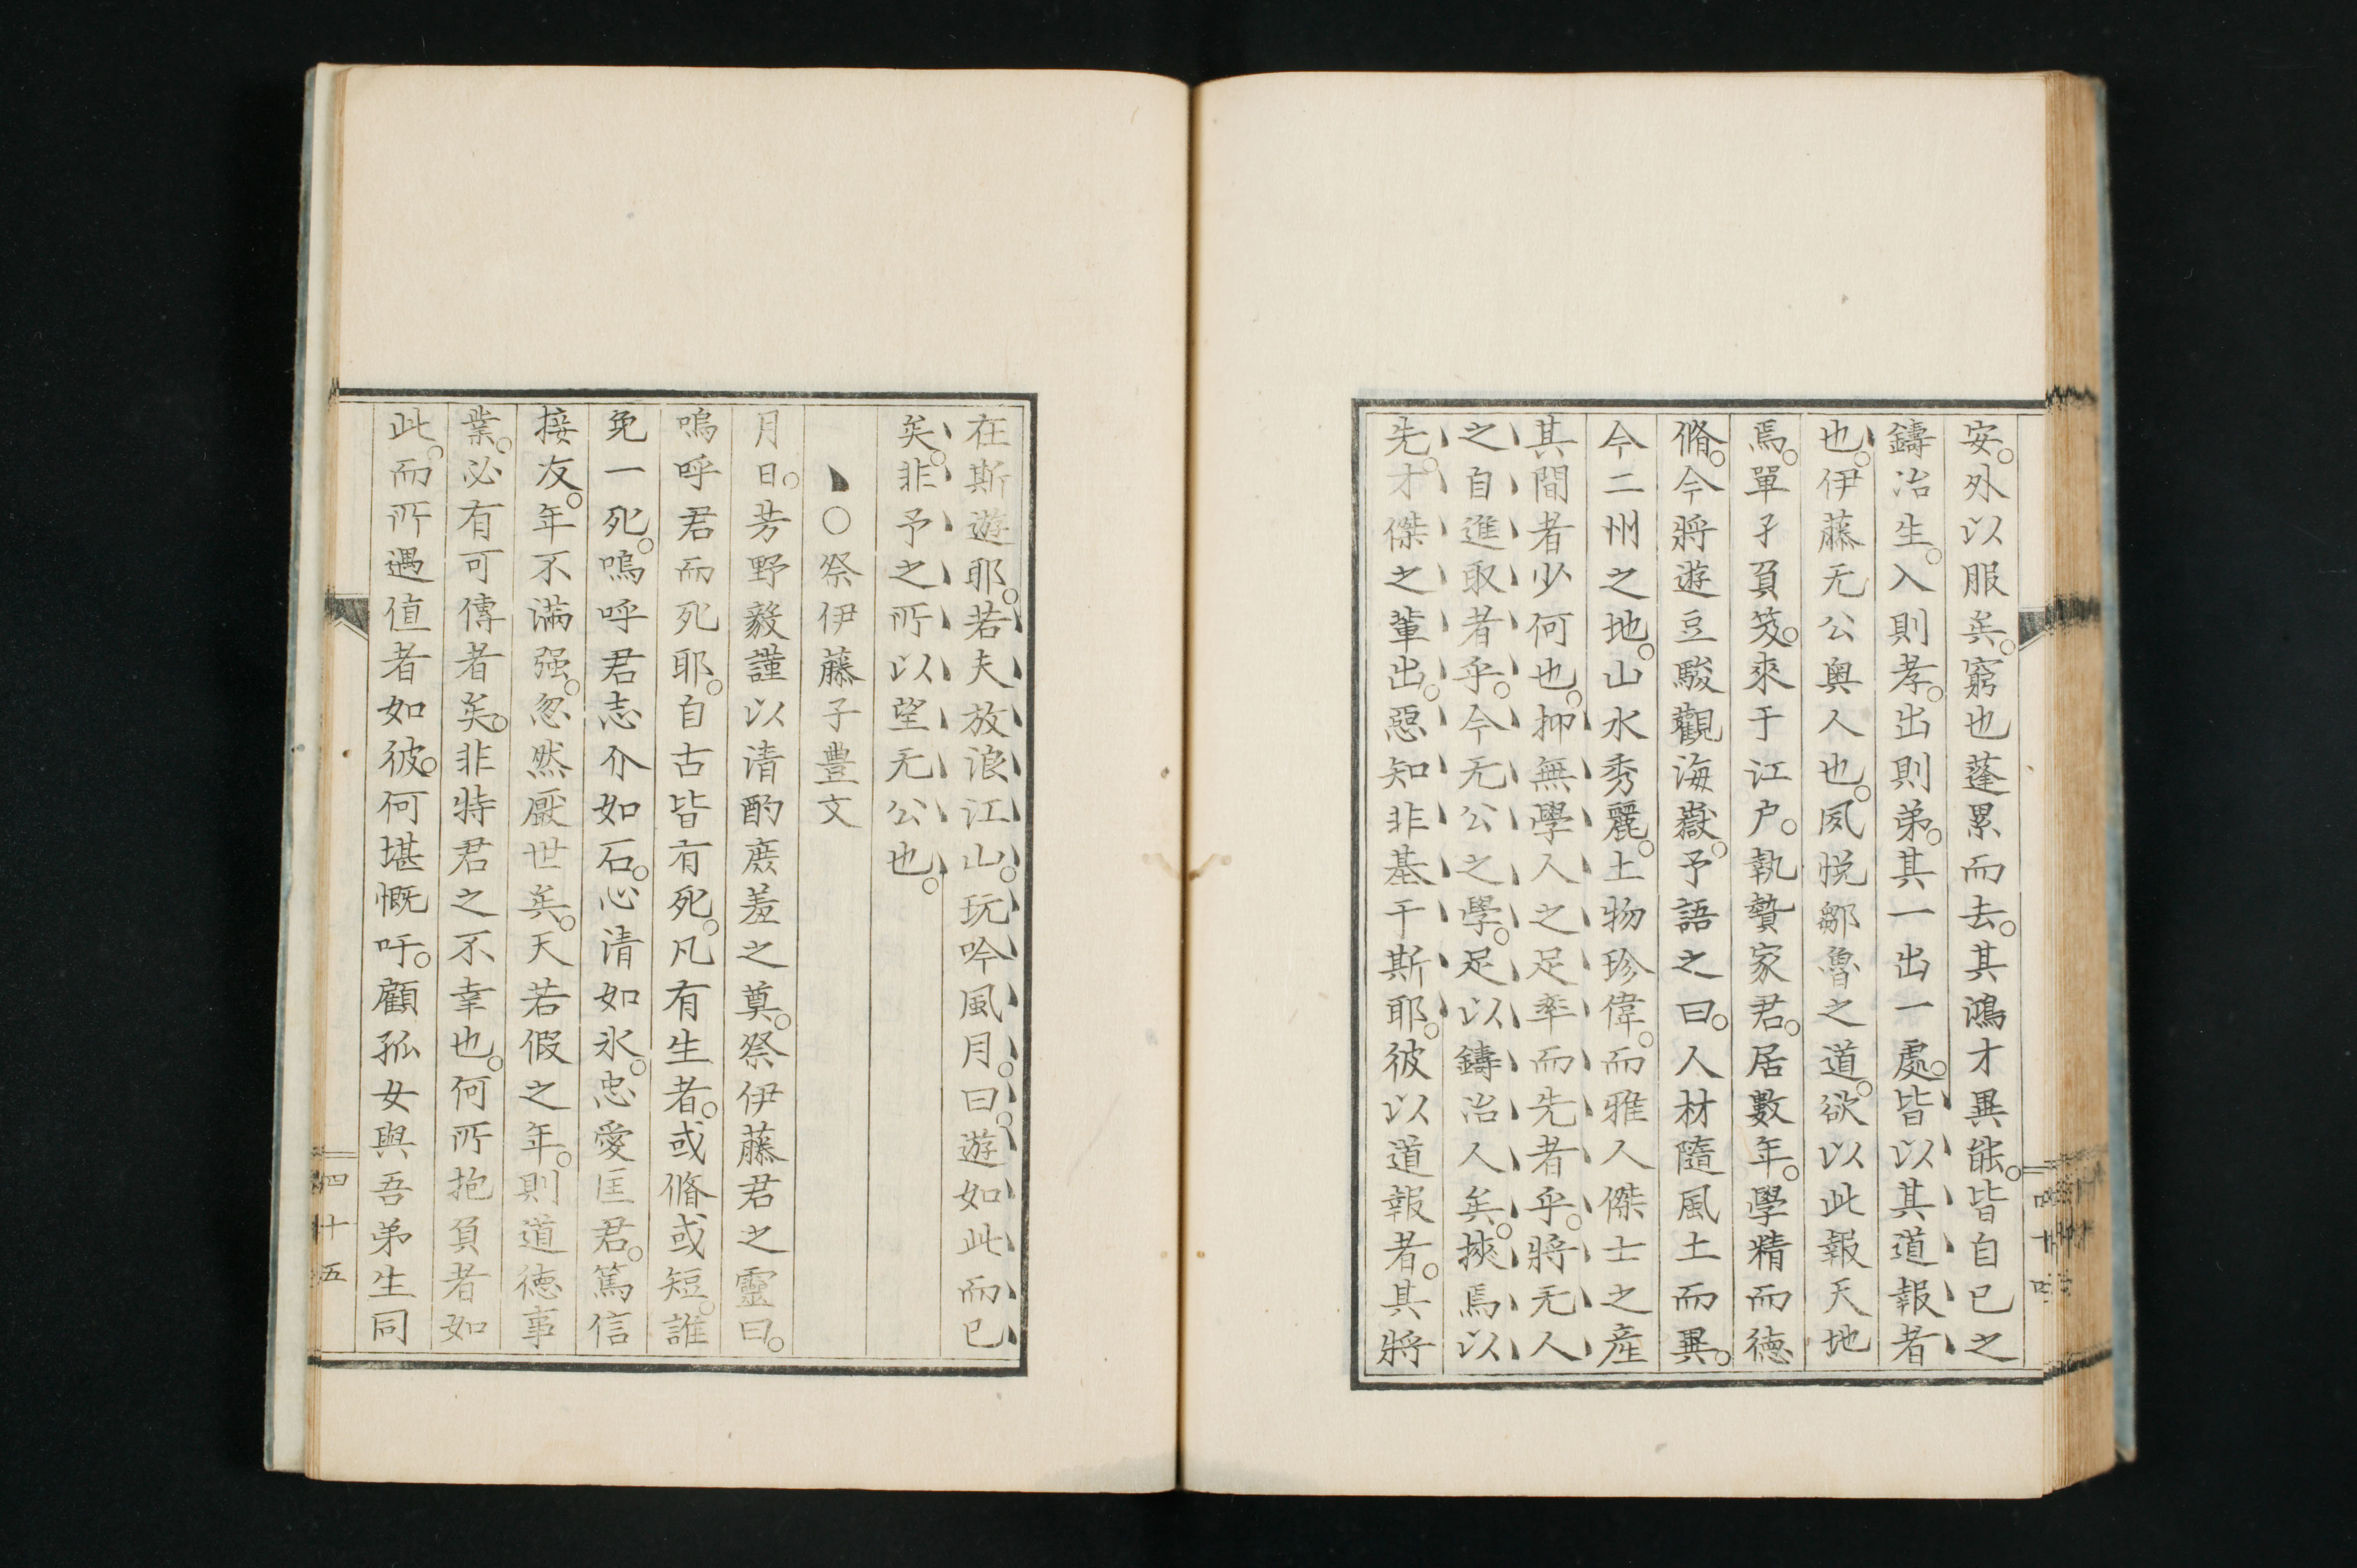 安。外以服矣。窮也蓬累而去。其鴻才異能。皆自已之
鑄冶生。入則孝。出則弟。其一出一處。皆以其道報者
也。伊藤无公奥人也。夙悦鄒魯之道。欲以此報天地
焉。單孑負笈。來于江户。執贄家君。居數年。學精而徳
脩。今將遊豆駿觀海嶽。予語之曰。人材隨風土而異。
今二州之地。山水秀麗。土物珍偉。而雅人傑士之産
其間者少何也。抑無學人之足率而先者乎。將无人
之自進取者乎。今无公之學。足以鑄冶人矣。挾焉以
先。才傑之輩出。惡知非基于斯耶。彼以道報者。其將
四十四
在斯遊耶。若夫放浪江山。玩吟風月。曰。遊如此而已
矣。非予之所以望无公也。
○祭伊藤子豊文
月日。芳野毅謹以清酌庶羞之奠。祭伊藤君之靈曰。
嗚呼君而死耶。自古皆有死。凡有生者。或脩或短。誰
免一死。嗚呼君志介如石。心清如氷。忠愛匡君。篤信
接友。年不滿强。忽然厭世矣。天若假之年。則道徳事
業。必有可傳者矣。非特君之不幸也。何所抱負者如
此。而所遇值者如彼。何堪慨吁。顧孤女與吾弟生同
四十五